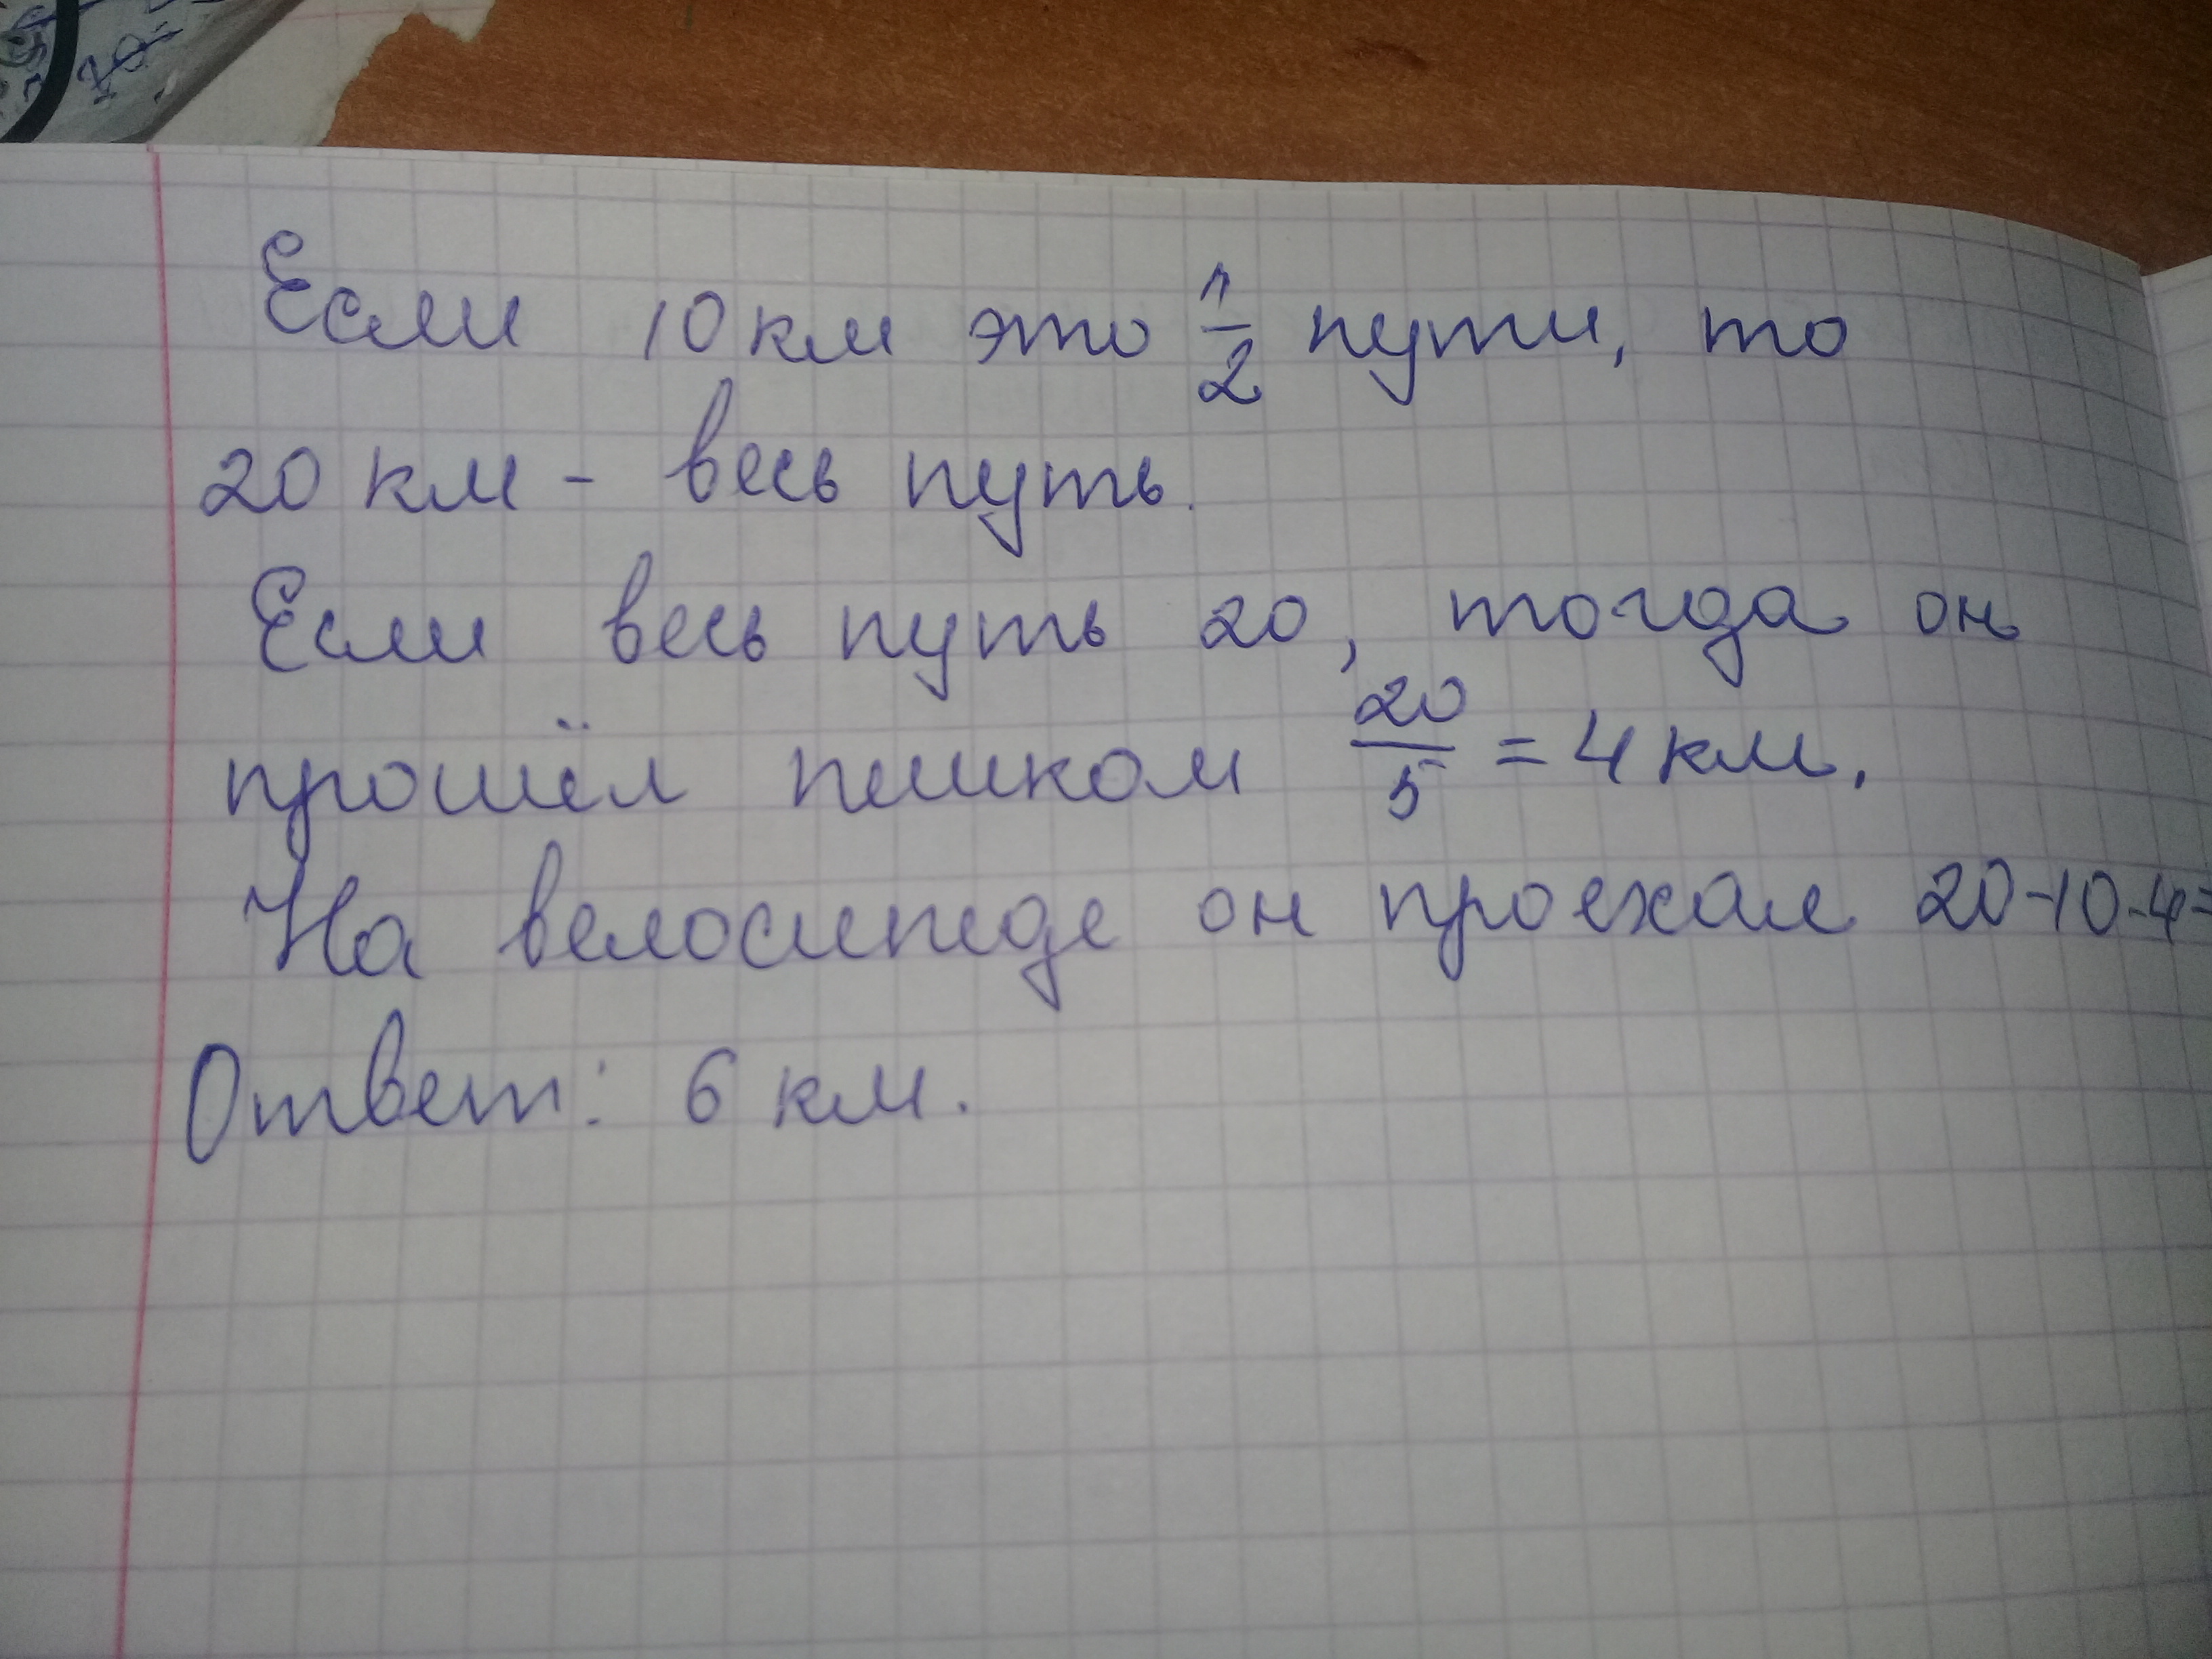 Если 10 км это 1/2 пути, то
20 км - весь путь.
Если весь путь 20, тогда он
прошёл пешком 20/5 = 4 км.
На велосипеде он проехал 20-10-4=
Ответ: 6 км.